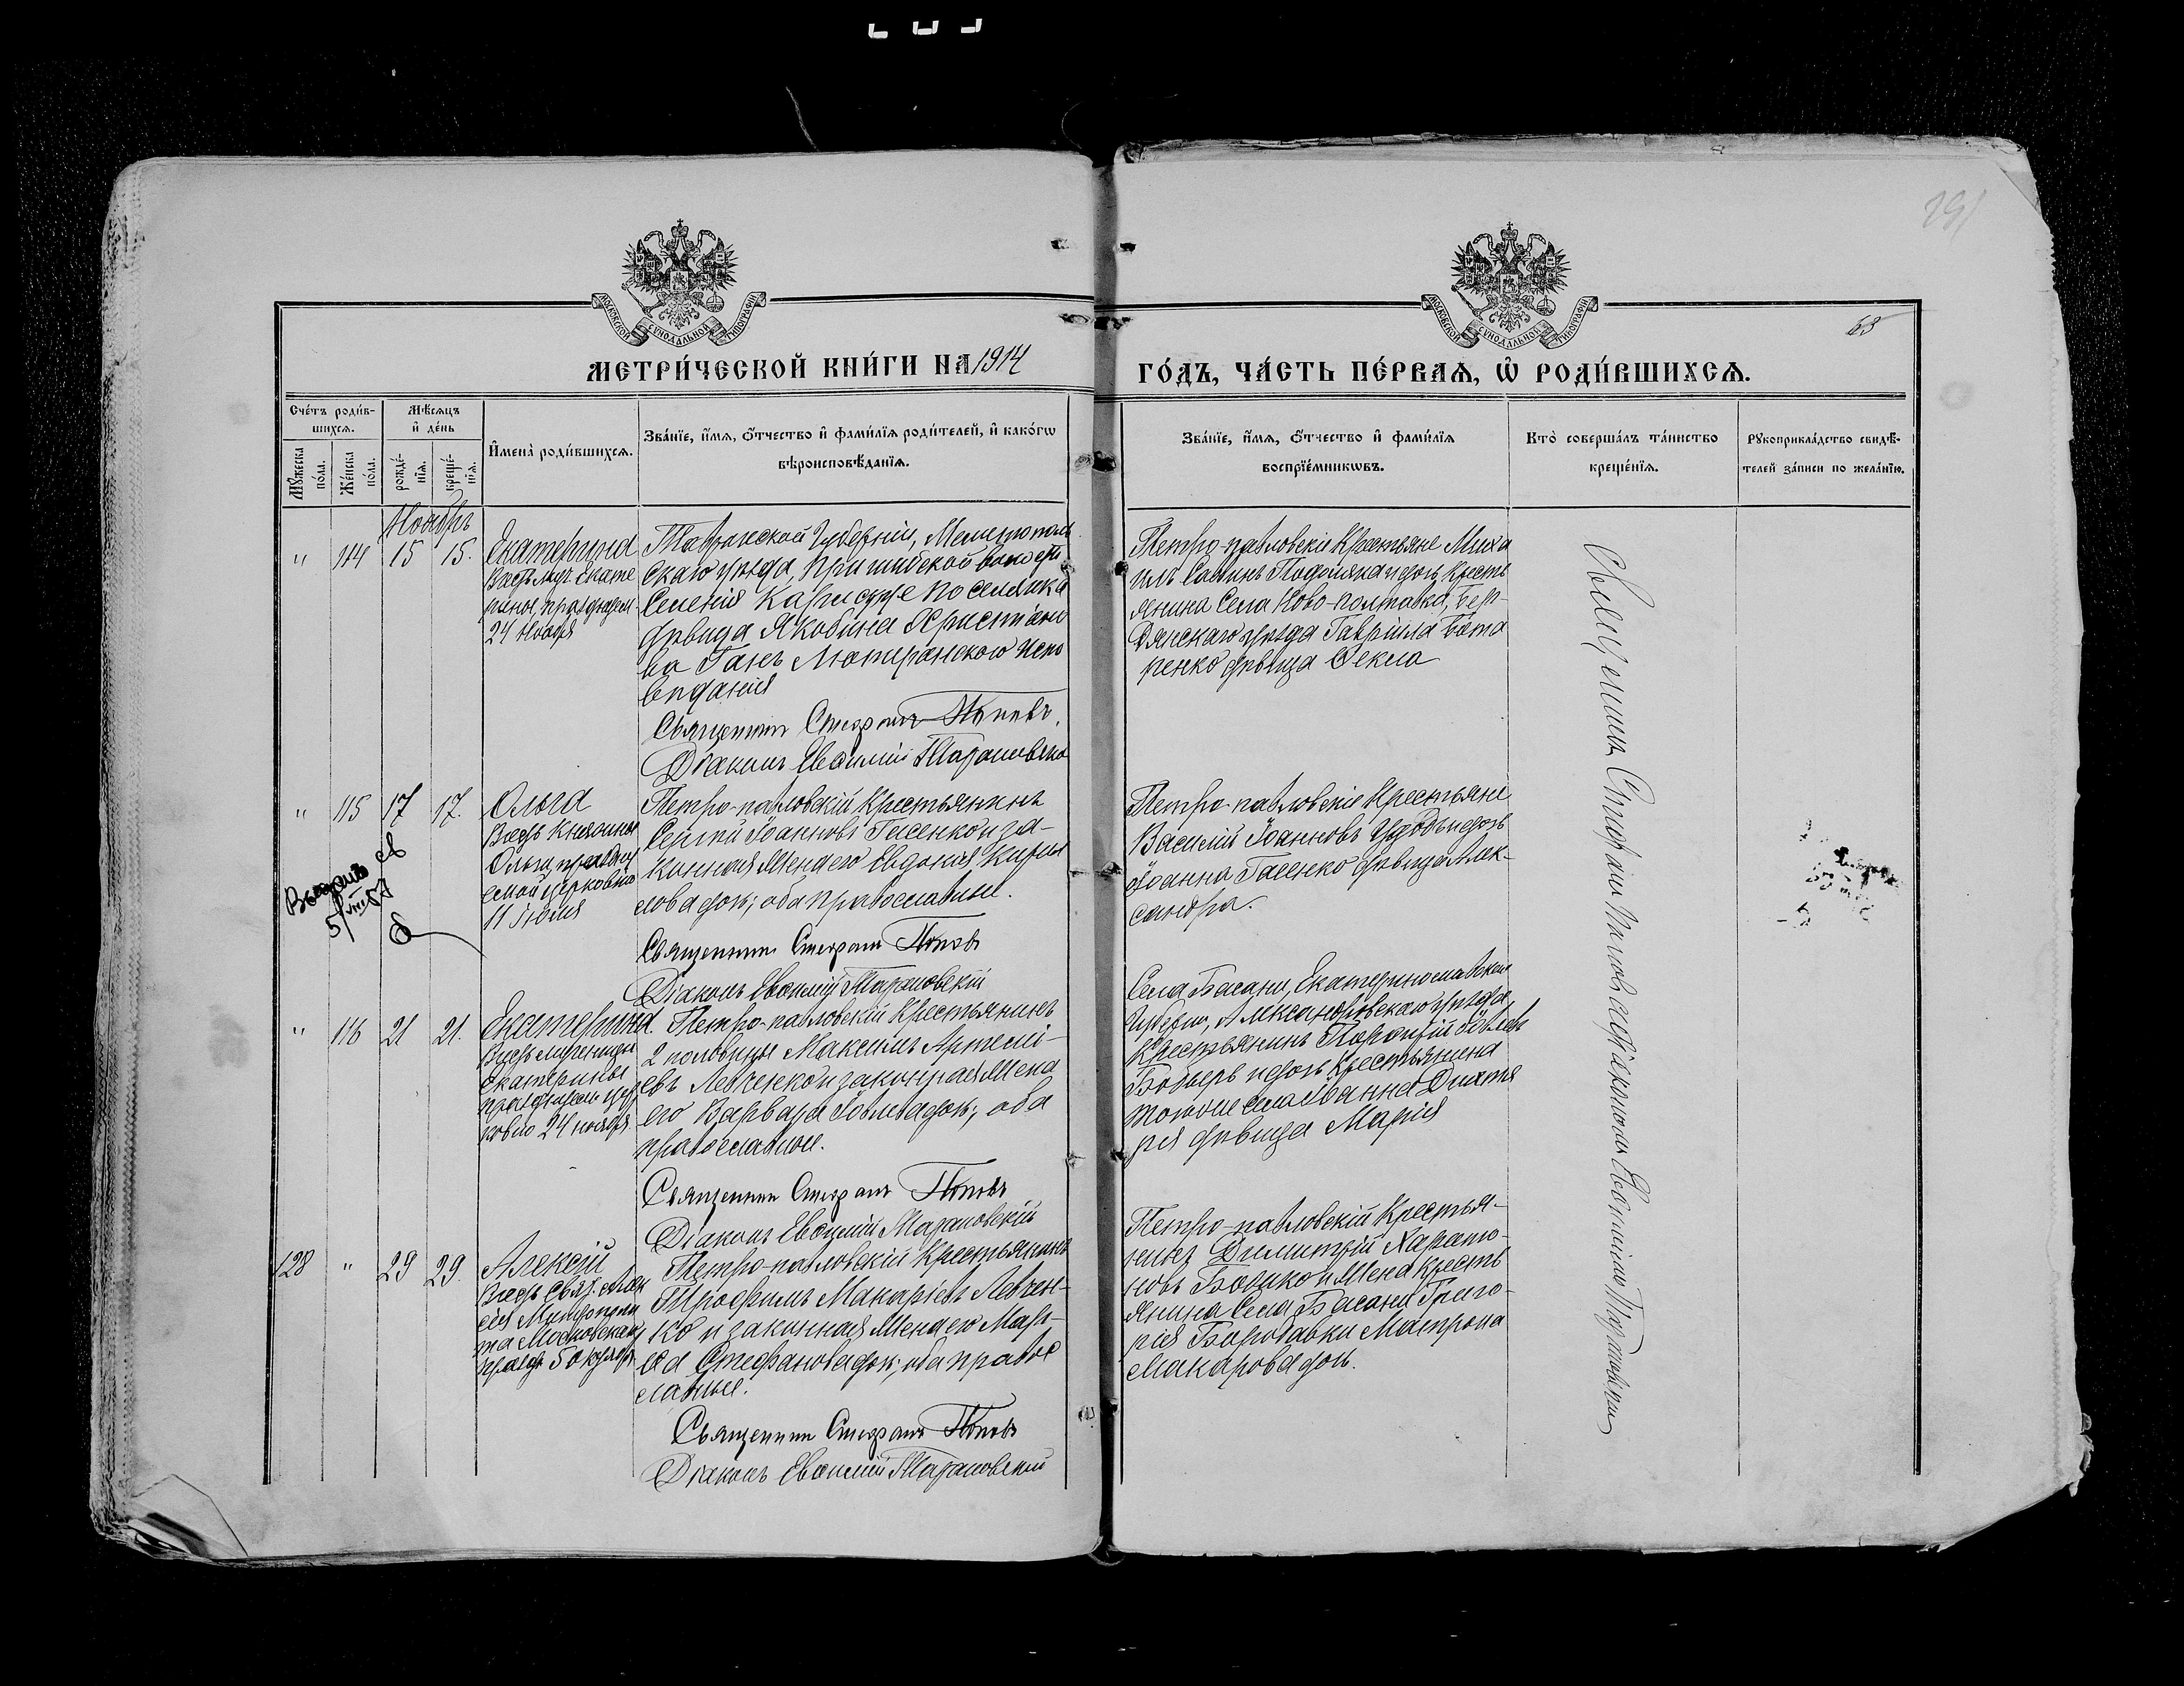 291
63
МОСКОВСКОЙ СѴНОДАЛЬНОЙ ТИПОГРАФІИ
МОСКОВСКОЙ СѴНОДАЛЬНОЙ ТИПОГРАФІИ
МЕТРИ́ЧЕСКОЙ КНИ́ГИ НА 1914 ГО́ДЪ, ЧА́СТЬ ПЕ́РВАѦ, Ѡ҆ РОДИ́ВШИХСѦ.
Сче́тъ роди́в-
шихсѧ.
Мꙋ́жеска
по́ла.
Же́нска
по́ла.
Мѣ́сѧцъ
и҆ де́нь
рожде́-
нїѧ.
креще́-
нїѧ.
И҆мена̀ роди́вшихсѧ.
Зва́нїе, и҆́мѧ, ѻ҆́тчество и҆ фами́лїѧ роди́телей, и҆ како́гѡ
вѣроисповѣ́данїѧ.
Зва́нїе, и҆́мѧ, ѻ҆́тчество и҆ фами́лїѧ
воспрїе́мникѡвъ.
Кто̀ соверша́лъ та́инство
креще́нїѧ.
Рꙋкоприкла́дство свидѣ́-
телей за́писи по жела́нїю.
Ноябрь
" 114 15 15.
Екатерина
Въ честь муч. Екате
рины, празднуем.
24 Ноября
Таврической Губерніи, Мелитополь
скаго уѣзда, Пришибской волости
Селенія Карлсруе поселянка
дѣвица Якобина Христіано
ва Ганъ Лютеранского испо
вѣданія
Священникъ Стефанъ Поповъ.
Діаконъ Евфимій Тарановскій
Петро-павловскіе Крестьяне Миха
илъ Саввинъ Подоляка и дочь Кресть
янина Села Ново-полтавка, Бер-
дянскаго уѣзда Гавріила Бота
ренко дѣвица Ѳекла
" 115 17 17.
Ольга
Въ честь Княгини
Ольги, праздну
емой церковію
11 Іюля
Петро-павловскій Крестьянинъ
Сергій Іоанновъ Гасенко и за-
конная жена его Евдокія Кирил
лова дочь; оба православные.
Священникъ Стефанъ Поповъ
Діаконъ Евфимій Тарановскій
Петро-павловскіе Крестьяне
Василій Іоанновъ Удодъ и дочь
Іоанна Гасенко дѣвица Алек-
сандра.
5/VIII 57
" 116 21 21.
Екатерина
Въ честь мученицы
Екатерины
праздуем. цер
ковію 24 ноября
Петро-павловскій Крестьянинъ
2 половицы Максимъ Артемі-
евъ Левченко и законная жена
его Варвара Іовлева дочь; оба
православные.
Священникъ Стефанъ Поповъ
Діаконъ Евфимій Тарановскій
Села Басани, Екатеринославской
Губерніи, Александровскаго уѣзда,
Крестьянинъ Порфирій Іовлевъ
Бобырь и дочь Крестьянина
того же села Іоанна
дѣвица Марія
128 " 29 29.
Алексій
Въ честь Свят. Алек
сія Митрополи
та Московскаго
празд. 5 октября
Петро-павловскій Крестьянинъ
Трофимъ Макаріевъ Левчен-
ко и законная жена его Мар-
ѳа Стефанова дочь; оба право
славные.
Священникъ Стефанъ Поповъ
Діаконъ Евфимій Тарановскій
Петро-павловскій Крестья-
нинъ Димитрій Харито-
новъ Божко и жена Кресть
янина Села Басани Григо-
рія Бородавки Матрона
Макарова дочь.
Священникъ Стефанъ Поповъ съ діакономъ Евфиміемъ Тарановскимъ